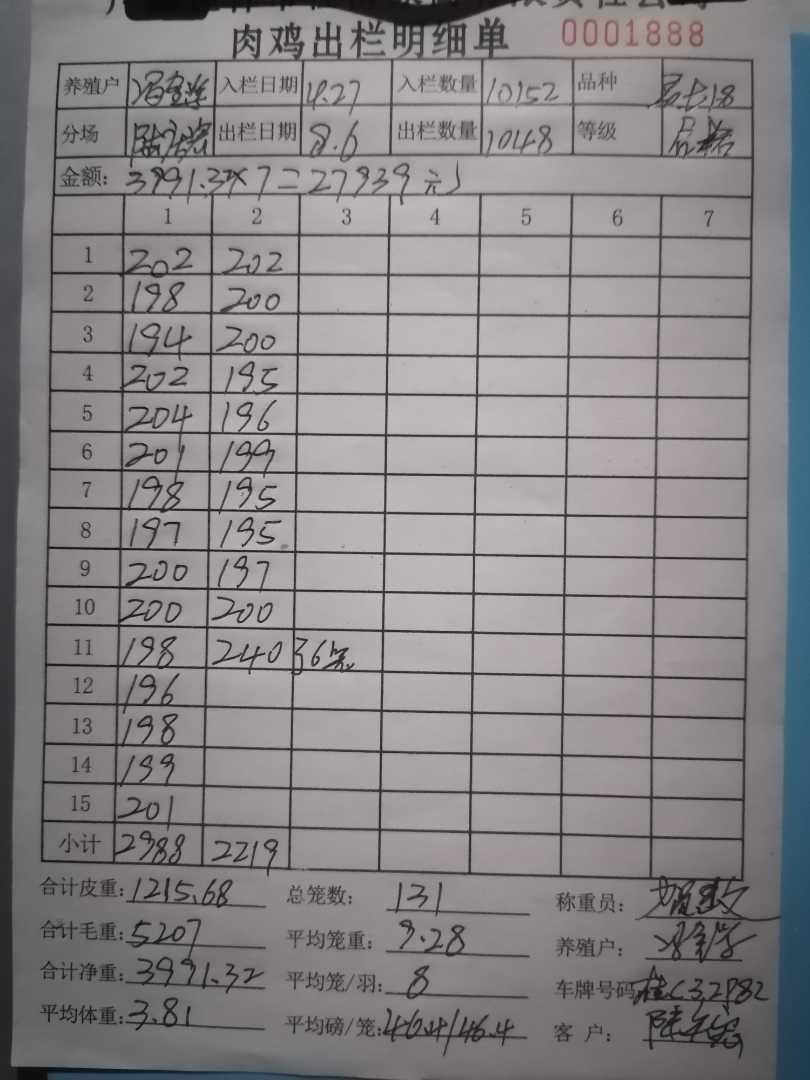 肉鸡出栏明细单 0001888
养殖户 入栏日期 4.27 入栏数量 10152 品种
分场 出栏日期 8.6 出栏数量 1048 等级
金额: 3991.32×7=27939元
1 2 3 4 5 6 7
1 202 202
2 198 200
3 194 200
4 202 195
5 204 196
6 201 199
7 198 195
8 197 195
9 200 197
10 200 200
11 198 240 36
12 196
13 198
14 199
15 201
小计 2988 2219
合计皮重: 1215.68 总笼数: 131 称重员:
合计毛重: 5207 平均笼重: 9.28 养殖户:
合计净重: 3991.32 平均笼/羽: 8 车牌号码 桂C32982
平均体重: 3.81 平均磅/笼: 46.4/46.4 客 户: